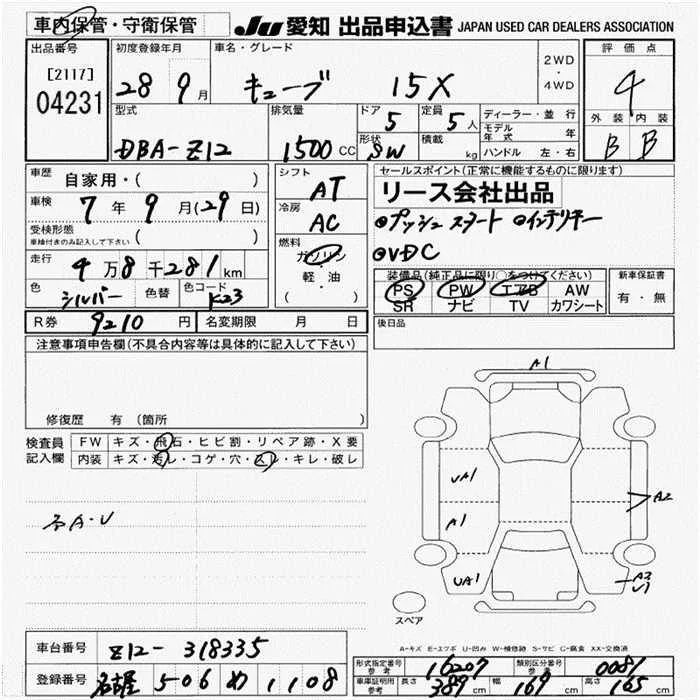 車内保管・守衛保管
JU 愛知 出品申込書 JAPAN USED CAR DEALERS ASSOCIATION
出品番号
[2117]
04231
初度登録年月
28 9月
車名・グレード
キューブ 15X
2WD
・
4WD
評価点
4
外装 内装
B B
型式
DBA-Z12
排気量
1500 CC
ドア
5
形状
SW
定員
5人
積載
kg
ディーラー・並行
モデル年式 年
ハンドル 左・右
車歴
自家用・( )
車検
7年 9月(29日)
受検形態
車検付きのみ記入して下さい ( )
走行
4万8千281km
色
シルバー
色替
色コード
K23
シフト
AT
冷房
AC
燃料
ガソリン
軽・油
( )
セールスポイント(正常に機能するものに限ります)
リース会社出品
●プッシュスタート ●インテリキー
●VDC
装備品(純正品に限り○をつけてください)
PS PW エアB AW
SR ナビ TV カワシート
新車保証書
有・無
R券 9210円
名変期限 月 日
後日品
注意事項申告欄(不具合内容等は具体的に記入して下さい)
修復歴 有 (箇所 )
検査員記入欄
FW キズ・飛石・ヒビ割・リペア跡・X要
内装 キズ・汚レ・コゲ・穴・スレ・キレ・破レ
A・U
A1
UA1
A1
UA1
A2
A2
U1
スペア
A-キズ E-エクボ U-凹み W-補修跡 S-サビ C-腐食 XX-交換済
車台番号 Z12-318335
登録番号 名古屋 506 め 1108
形式指定番号参考 16207
類別区分番号参考 0081
車庫証明用参考 長さ 389cm 幅 169cm 高さ 165cm